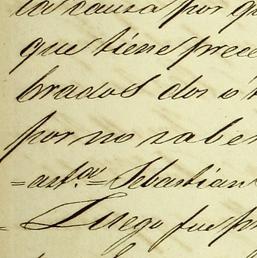 la causa por qu
que tiene prece
brados dos ó t
por no saber
=asf.ᵒʳ= Sebastian
= Luego fue p